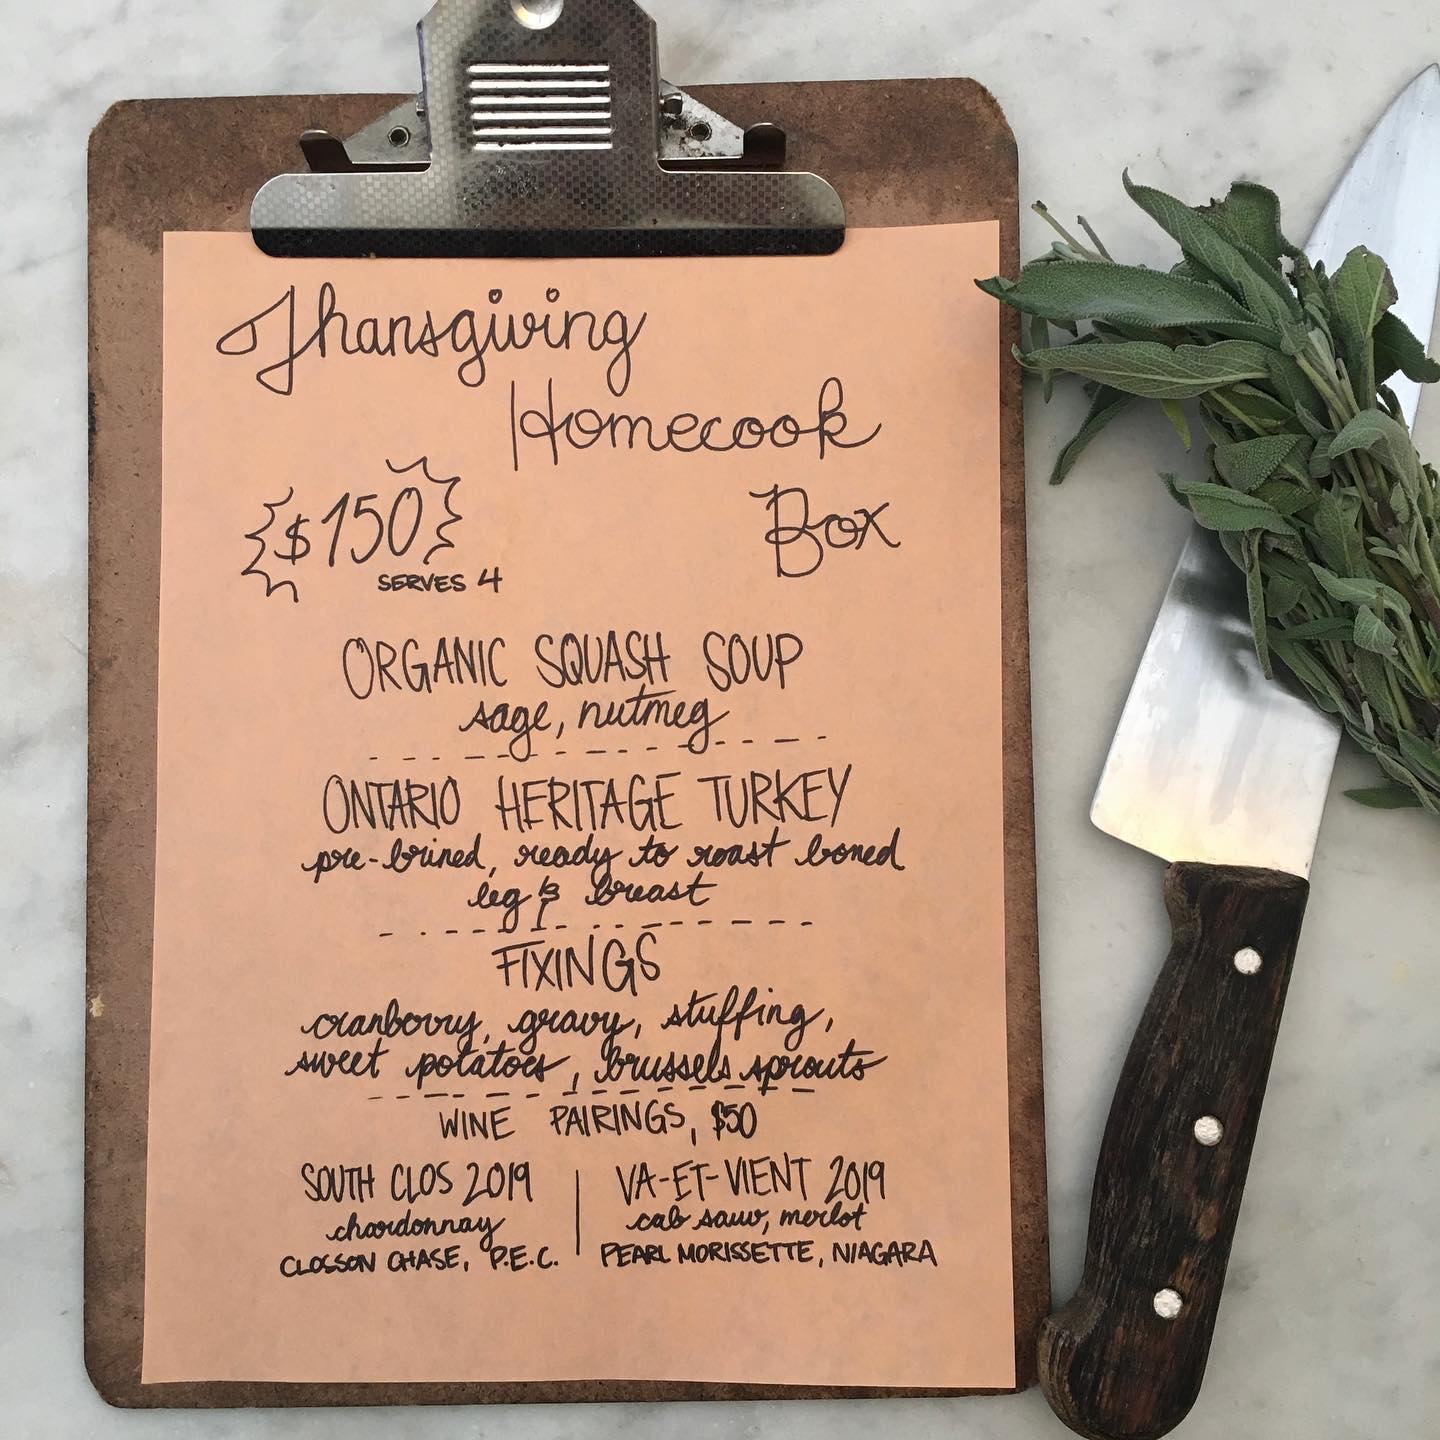 Thansgiving
Homecook
$150
Box
SERVES 4
ORGANIC SQUASH SOUP
sage, nutmeg
ONTARIO HERITAGE TURKEY
pre-brined, ready to roast boned
leg & breast
FIXINGS
cranberry, gravy, stuffing,
sweet potatoes, brussels sprouts
WINE PAIRINGS, $50
SOUTH CLOS 2019 | VA-ET-VIENT 2019
chardonnay cab sauv, merlot
CLOSSON CHASE, P.E.C. PEARL MORISSETTE, NIAGARA